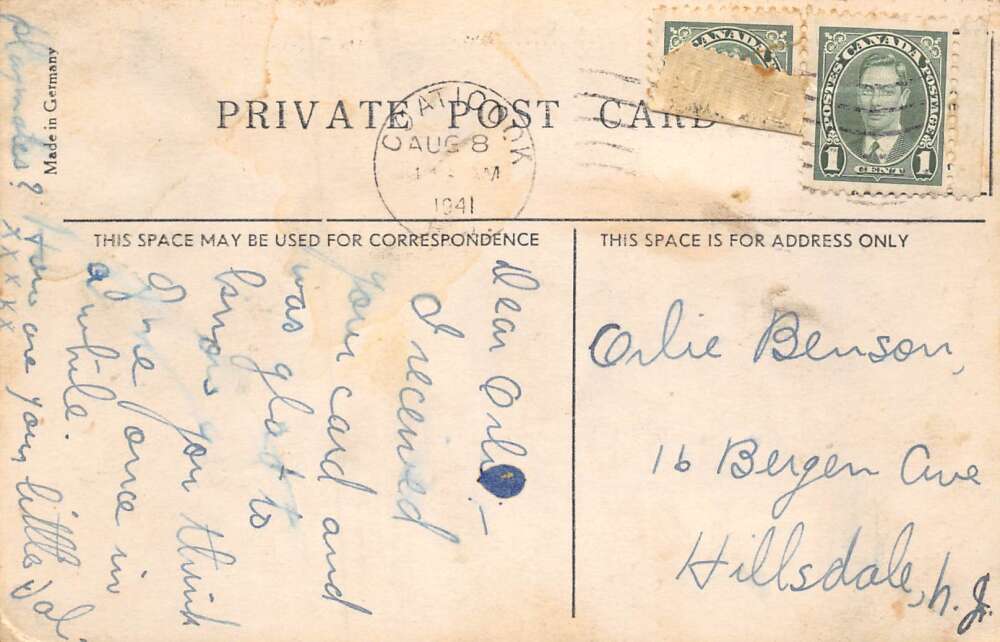 Made in Germany
PRIVATE POST CARD
COATICOOK
AUG 8
AM
1941
CANADA
CANADA
POSTES POSTAGE
1 CENT 1
THIS SPACE MAY BE USED FOR CORRESPONDENCE
THIS SPACE IS FOR ADDRESS ONLY
Dear Orlo:—
I received
your card and
was glad to
know you think
of me once in
a while.
How are your little
playmates?
xxxxx
Orlie Benson,
16 Bergen Ave
Hillsdale, N. J.